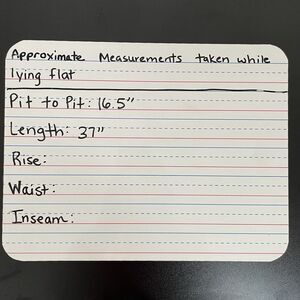 Approximate Measurements taken while
lying flat
Pit to Pit: 16.5"
Length: 37"
Rise:
Waist:
Inseam: